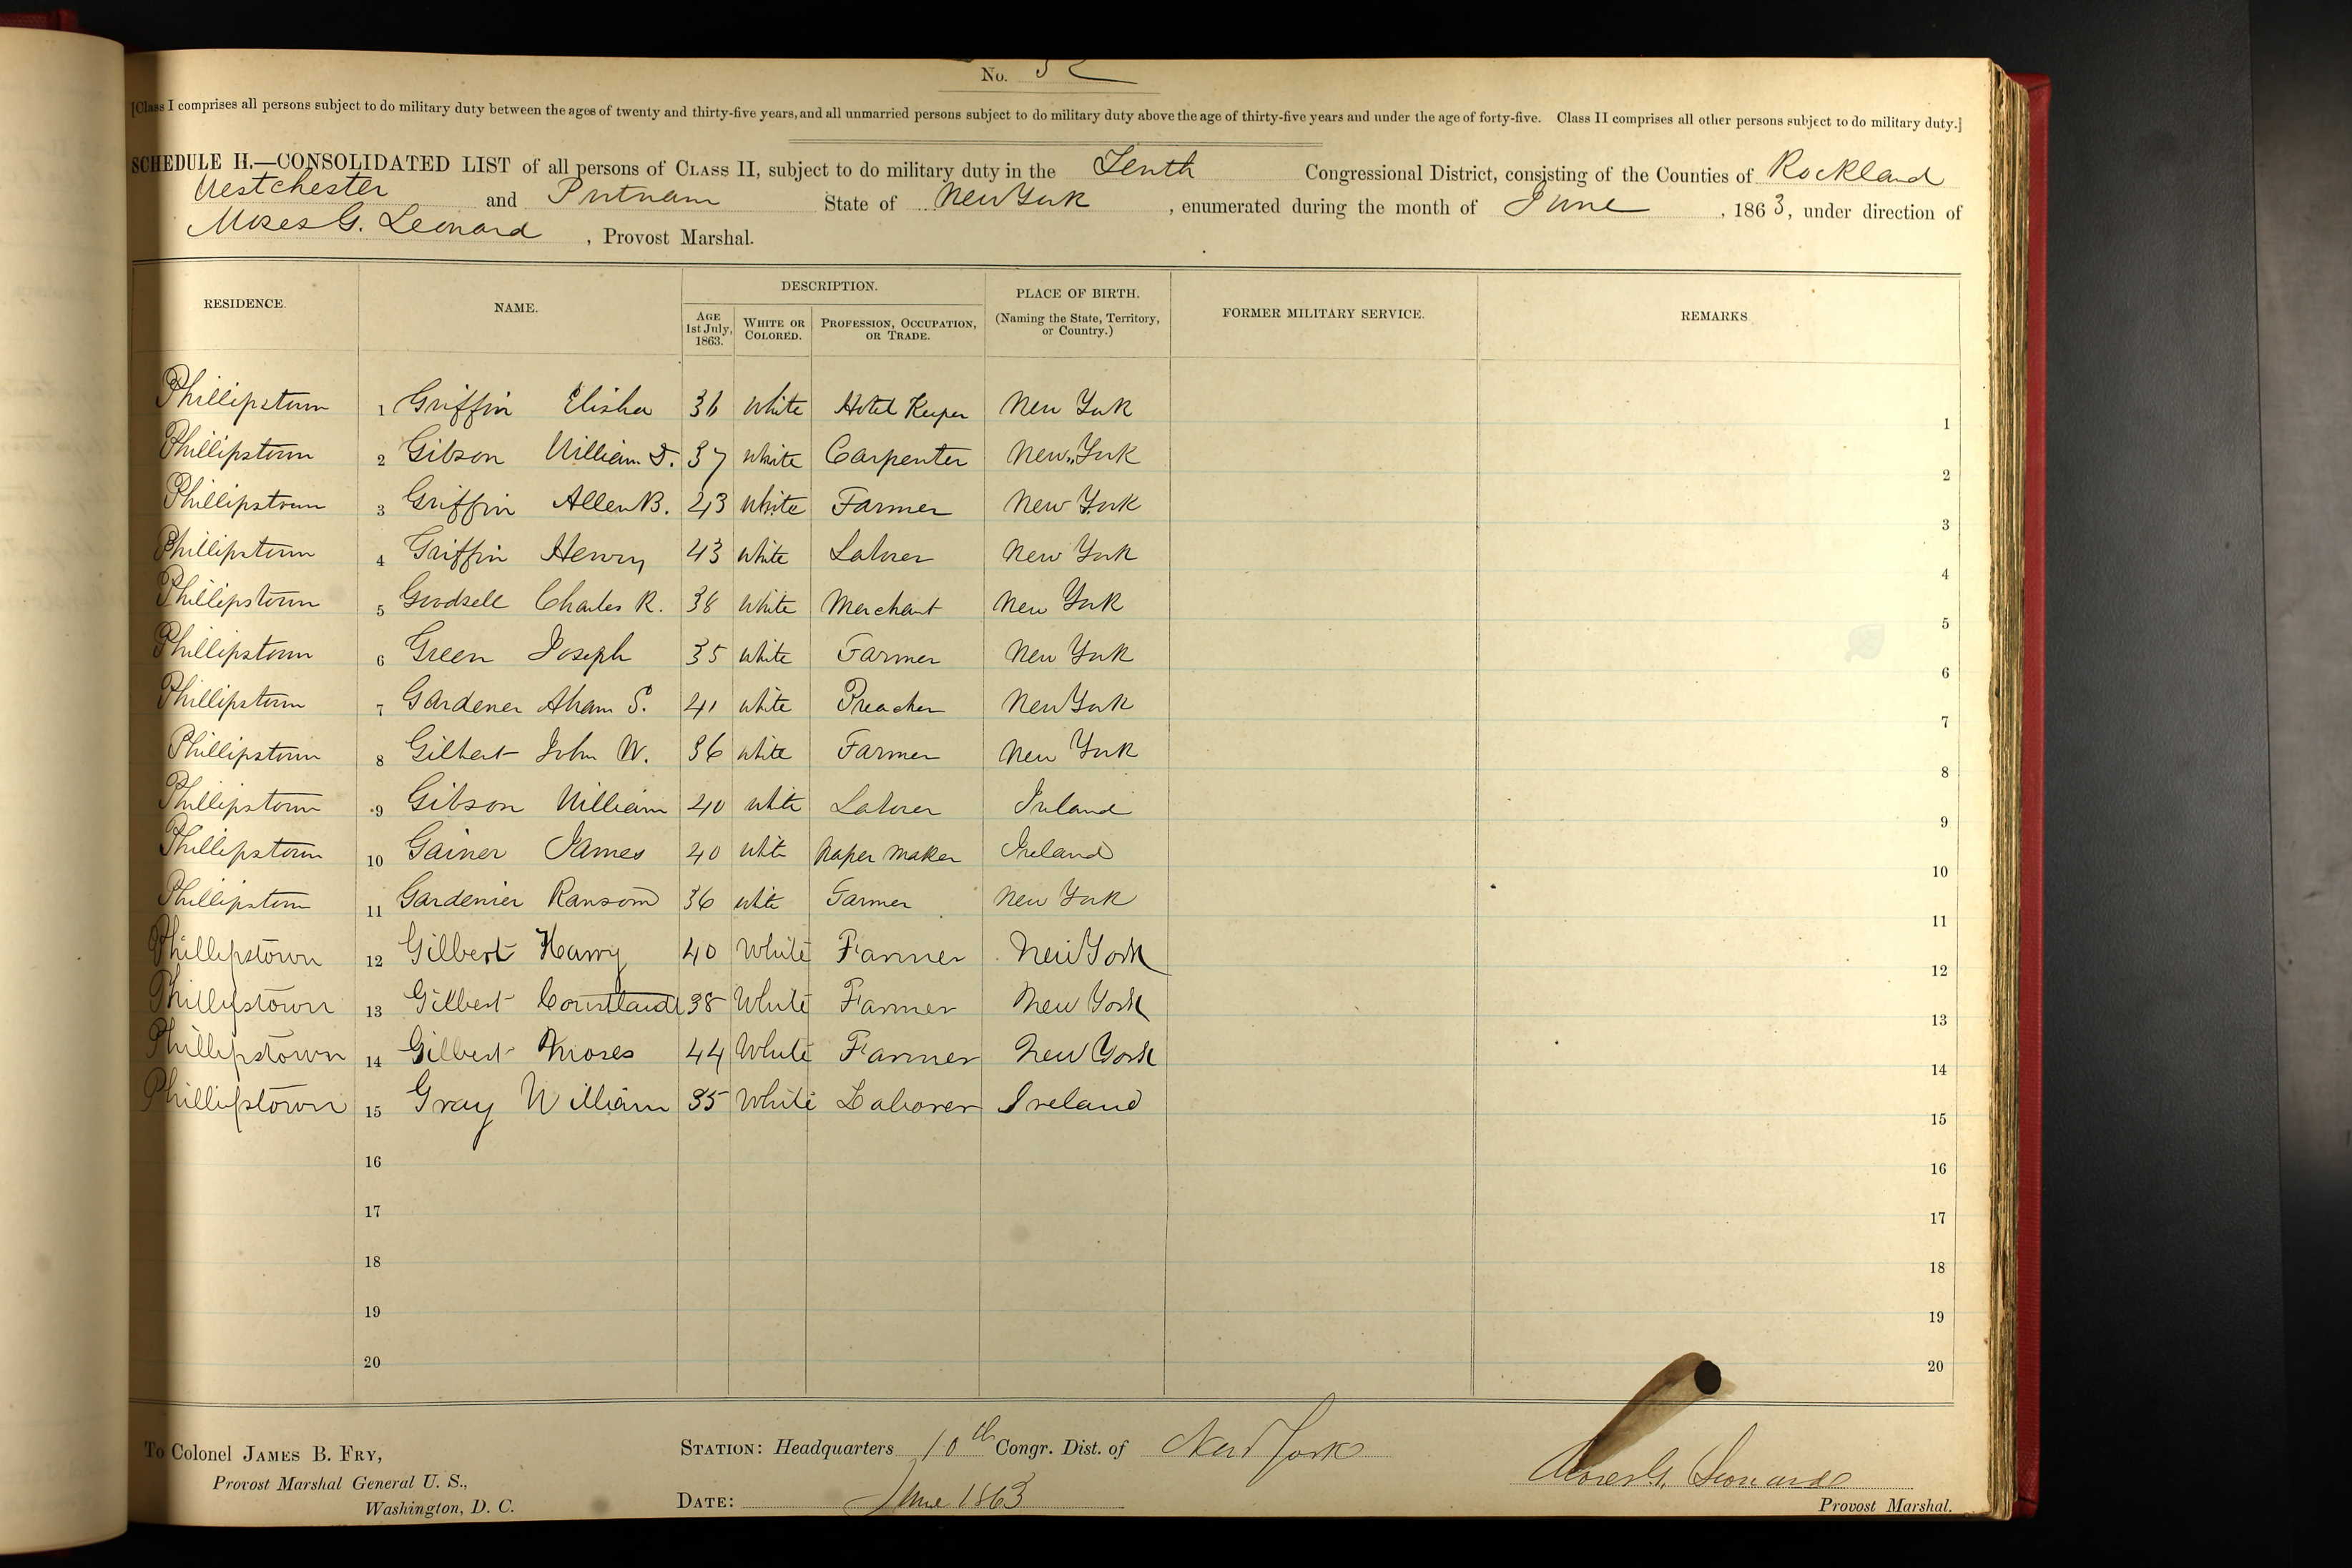 No. 52
[Class I comprises all persons subject to do military duty between the ages of twenty and thirty-five years, and all unmarried persons subject to do military duty above the age of thirty-five years and under the age of forty-five. Class II comprises all other persons subject to do military duty.]
SCHEDULE II.—CONSOLIDATED LIST of all persons of CLASS II, subject to do military duty in the Tenth Congressional District, consisting of the Counties of Rockland
Westchester and Putnam State of New York, enumerated during the month of June, 1863, under direction of
Moses G. Leonard, Provost Marshal.
RESIDENCE. NAME. DESCRIPTION. PLACE OF BIRTH. (Naming the State, Territory, or Country.) FORMER MILITARY SERVICE. REMARKS
AGE 1st July, 1863. WHITE OR COLORED. PROFESSION, OCCUPATION, OR TRADE.
Phillipstown 1 Griffin Elisha 36 White Hotel Keeper New York 1
Phillipstown 2 Gibson William D. 37 White Carpenter New York 2
Phillipstown 3 Griffin Allen B. 43 White Farmer New York 3
Phillipstown 4 Griffin Henry 43 White Laborer New York 4
Phillipstown 5 Goodsell Charles R. 38 White Merchant New York 5
Phillipstown 6 Green Joseph 35 White Farmer New York 6
Phillipstown 7 Gardener S. 41 White Preacher New York 7
Phillipstown 8 Gilbert John W. 36 White Farmer New York 8
Phillipstown 9 Gibson William 40 White Laborer Ireland 9
Phillipstown 10 Gainor James 40 White Paper Maker Ireland 10
Phillipstown 11 Gardenier Ransom 36 White Farmer New York 11
Phillipstown 12 Gilbert Harry 40 White Farmer New York 12
Phillipstown 13 Gilbert Courtlandt 38 White Farmer New York 13
Phillipstown 14 Gilbert Moses 44 White Farmer New York 14
Phillipstown 15 Gray William 35 White Laborer Ireland 15
16 16
17 17
18 18
19 19
20 20
To Colonel JAMES B. FRY,
Provost Marshal General U. S.,
Washington, D. C.
STATION: Headquarters 10th Congr. Dist. of New York
DATE: June 1863
Moses G. Leonard
Provost Marshal.